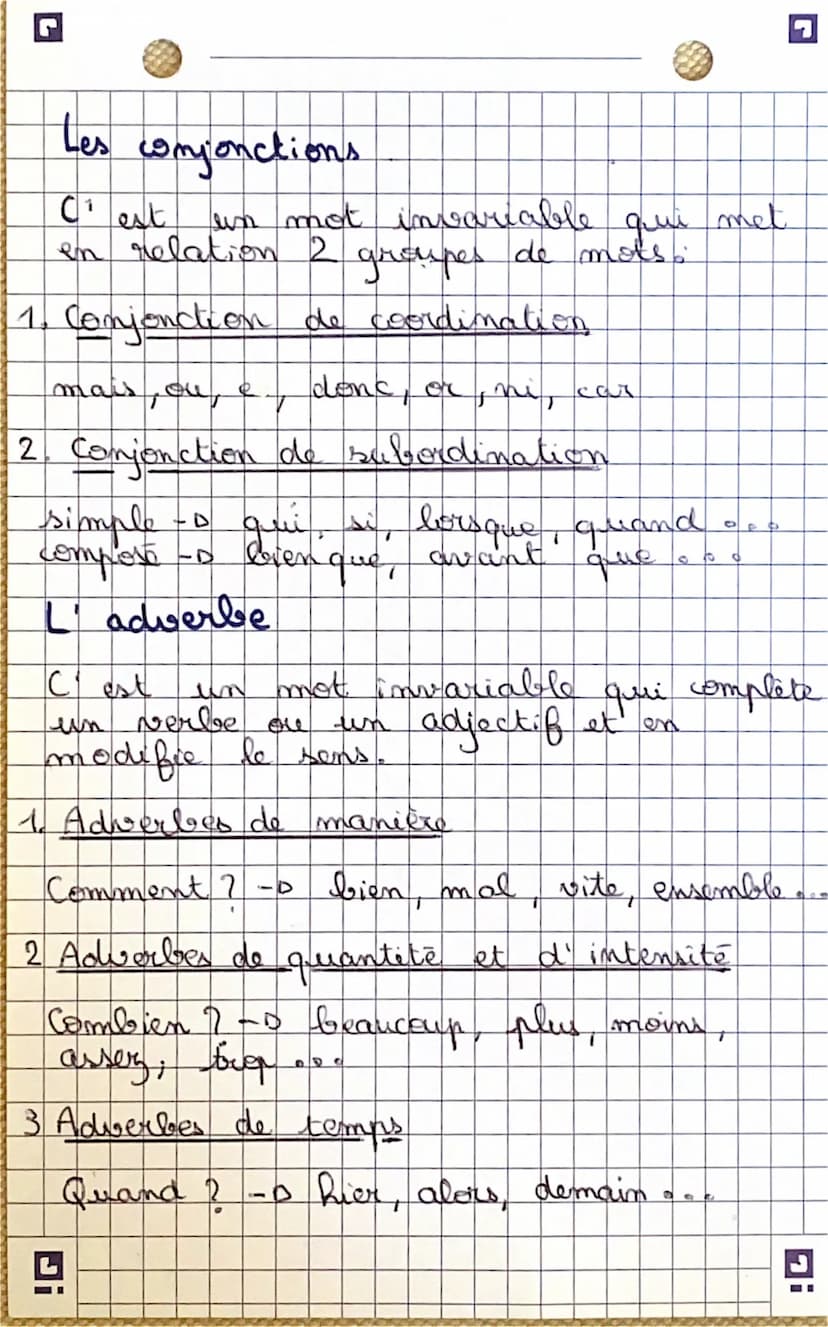 Les conjonctions
C' est un mot invariable qui met
en relation 2 groupes de mots.
1. Conjonction de coordination
mais, ou, e, donc, or, ni, car
2. Conjonction de subordination
simple → qui, si, lorsque, quand ...
composé → bien que, avant que ...
L' adverbe
C' est un mot invariable qui complète
un verbe ou un adjectif et en
modifie le sens.
1. Adverbes de manière
Comment ? → bien, mal, vite, ensemble ...
2 Adverbes de quantité et d' intensité
Combien ? → beaucoup, plus, moins,
assez, trop ...
3 Adverbes de temps
Quand ? → hier, alors, demain ...